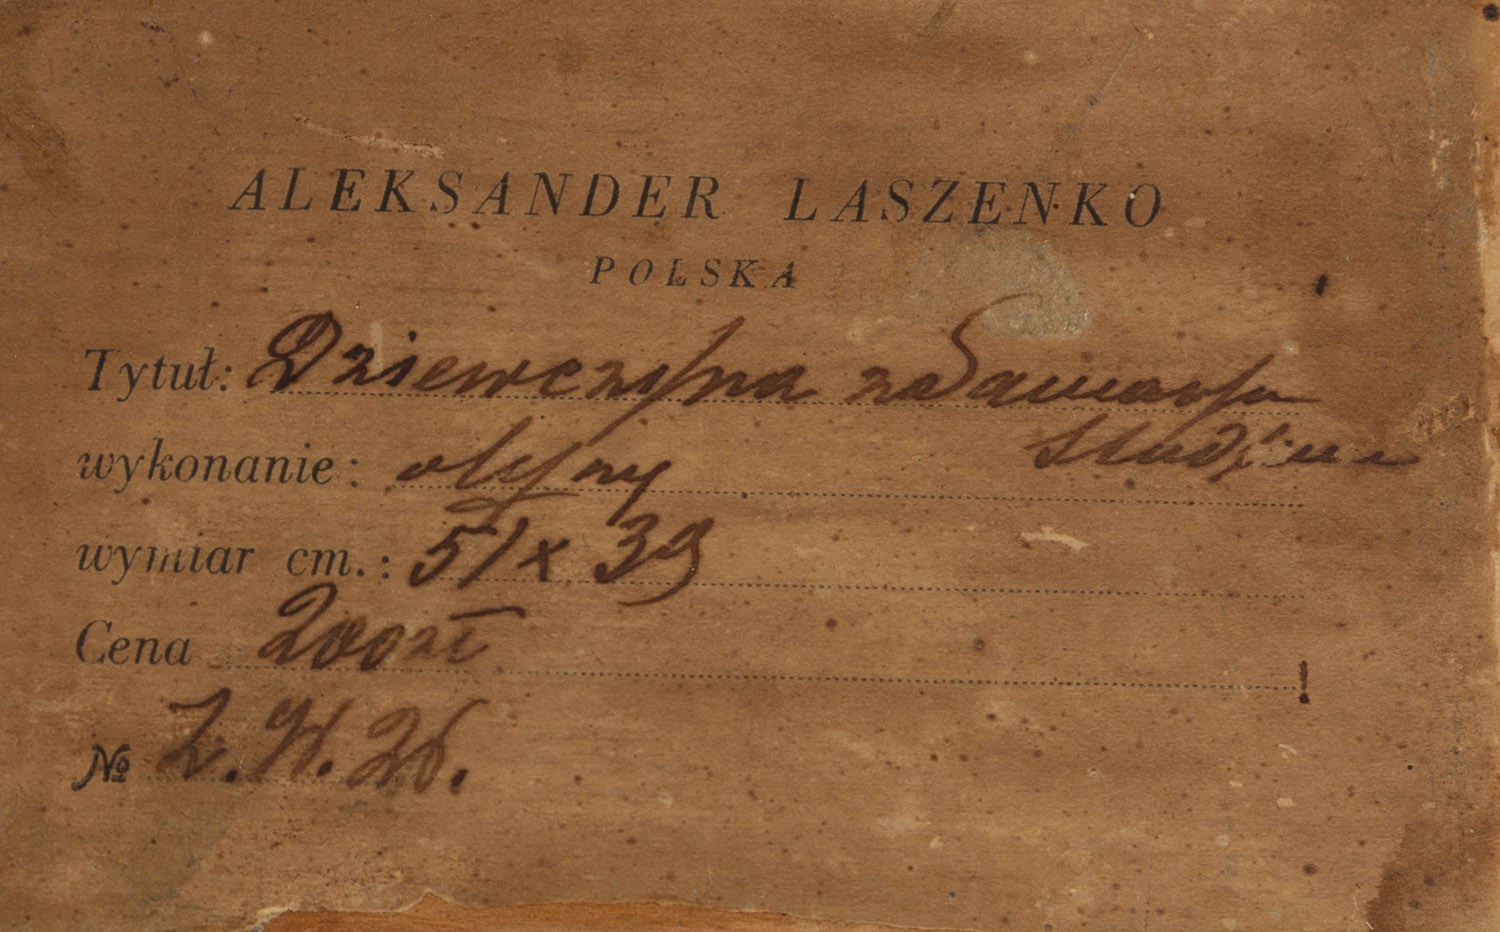 ALEKSANDER LASZENKO
POLSKA
Tytuł: Dziewczyna
studium
wykonanie: olejny
wymiar cm.: 51 x 39
Cena 200 zł
№ 26.